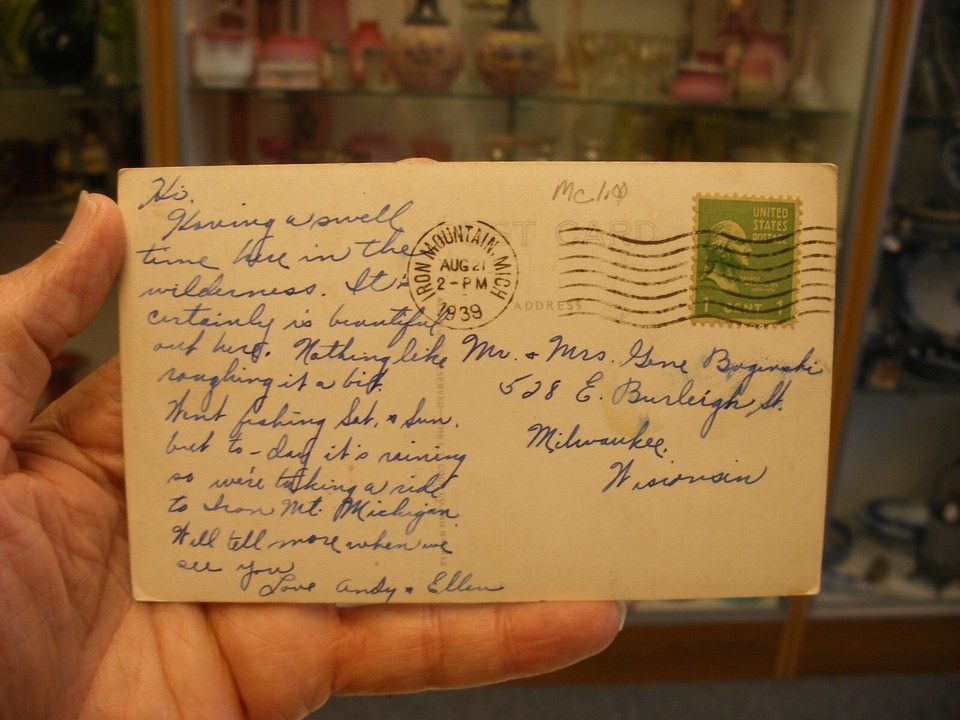 Hi,
Having a swell
time here in the
wilderness. It's
certainly is beautiful
out here. Nothing like
roughing it a bit.
Went fishing Sat. & Sun.
but to-day it's raining
so we're taking a ride
to Iron Mt. Michigan.
Will tell more when we
see you
Love Andy & Ellen
POST CARD
ADDRESS
IRON MOUNTAIN, MICH
AUG 21
2-PM
1939
UNITED
STATES
POSTAGE
1 CENT 1
Mr. & Mrs. Gene Boginski
528 E. Burleigh St.
Milwaukee,
Wisconsin